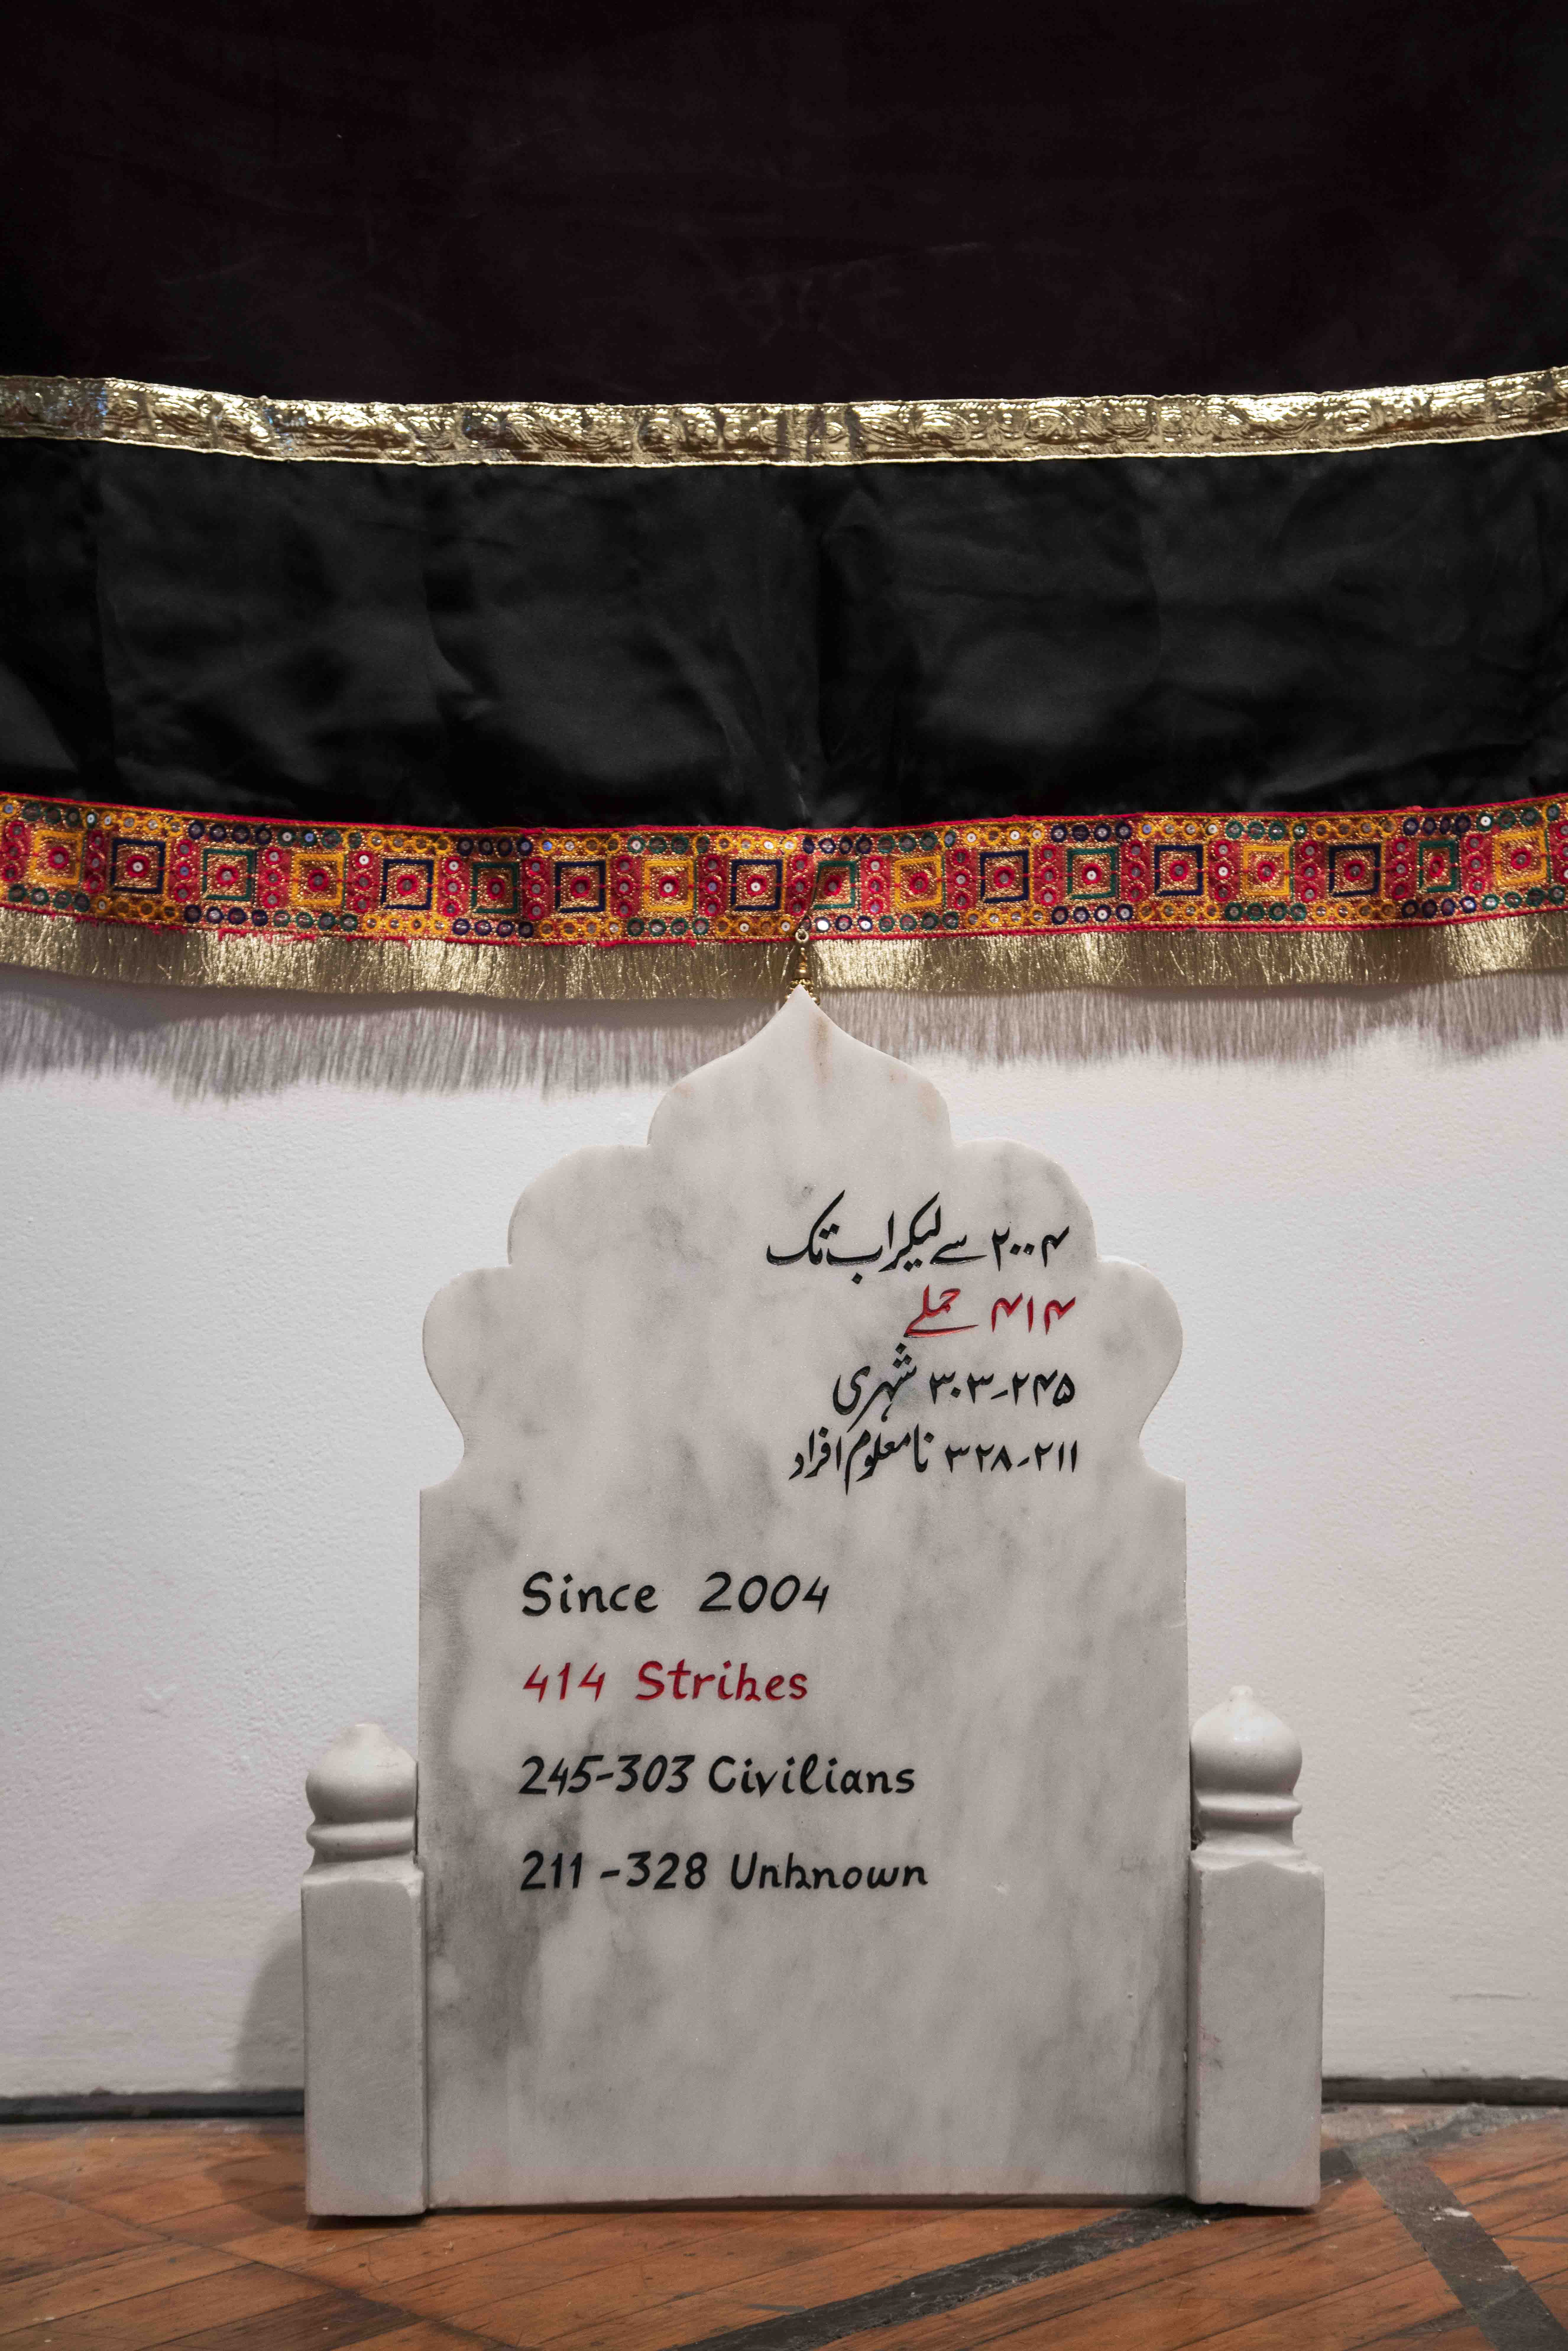 ۲۰۰۴ سے لیکر اب تک
۴۱۴ حملے
۲۴۵-۳۰۳ شہری
۲۱۱-۳۲۸ نامعلوم افراد
Since 2004
414 Strikes
245-303 Civilians
211-328 Unknown